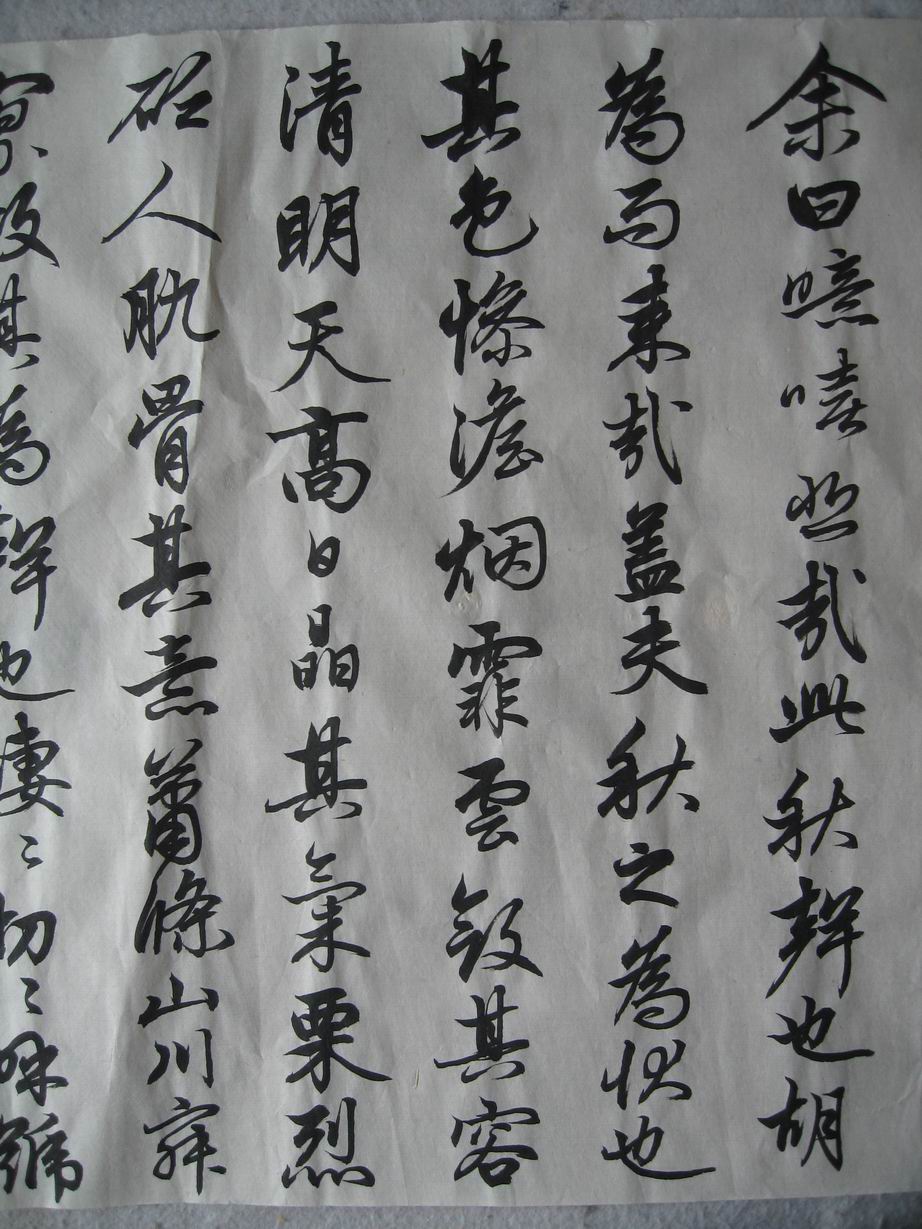 余曰噫嘻悲哉此秋聲也胡
為而來哉蓋夫秋之為狀也
其色慘澹烟霏雲斂其容
清明天高日晶其氣栗烈
砭人肌骨其意蕭條山川寂
寥故其為聲也淒〻切〻呼號